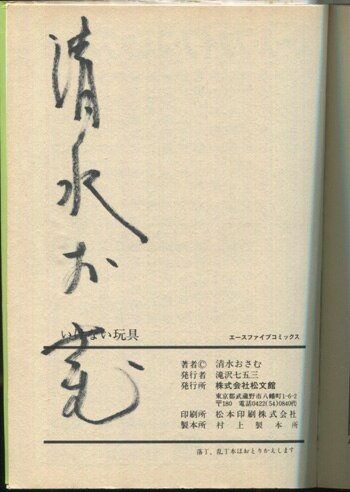 清水おさむ
い ない玩具
エースファイブコミックス
著者© 清水おさむ
発行者 滝沢七五三
発行所 株式会社松文館
東京都武蔵野市八幡町1-6-2
〒180 電話0422(54)0840代
印刷所 松本印刷株式会社
製本所 村上製本所
落丁、乱丁本はおとりかえします